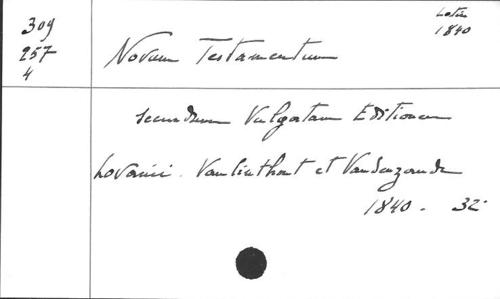 309
257
4
Latin
1840
Novum Testamentum
secundum Vulgatam Editionem
Lovanii. Vanlinthout et Vandenzande
1840 - 32°